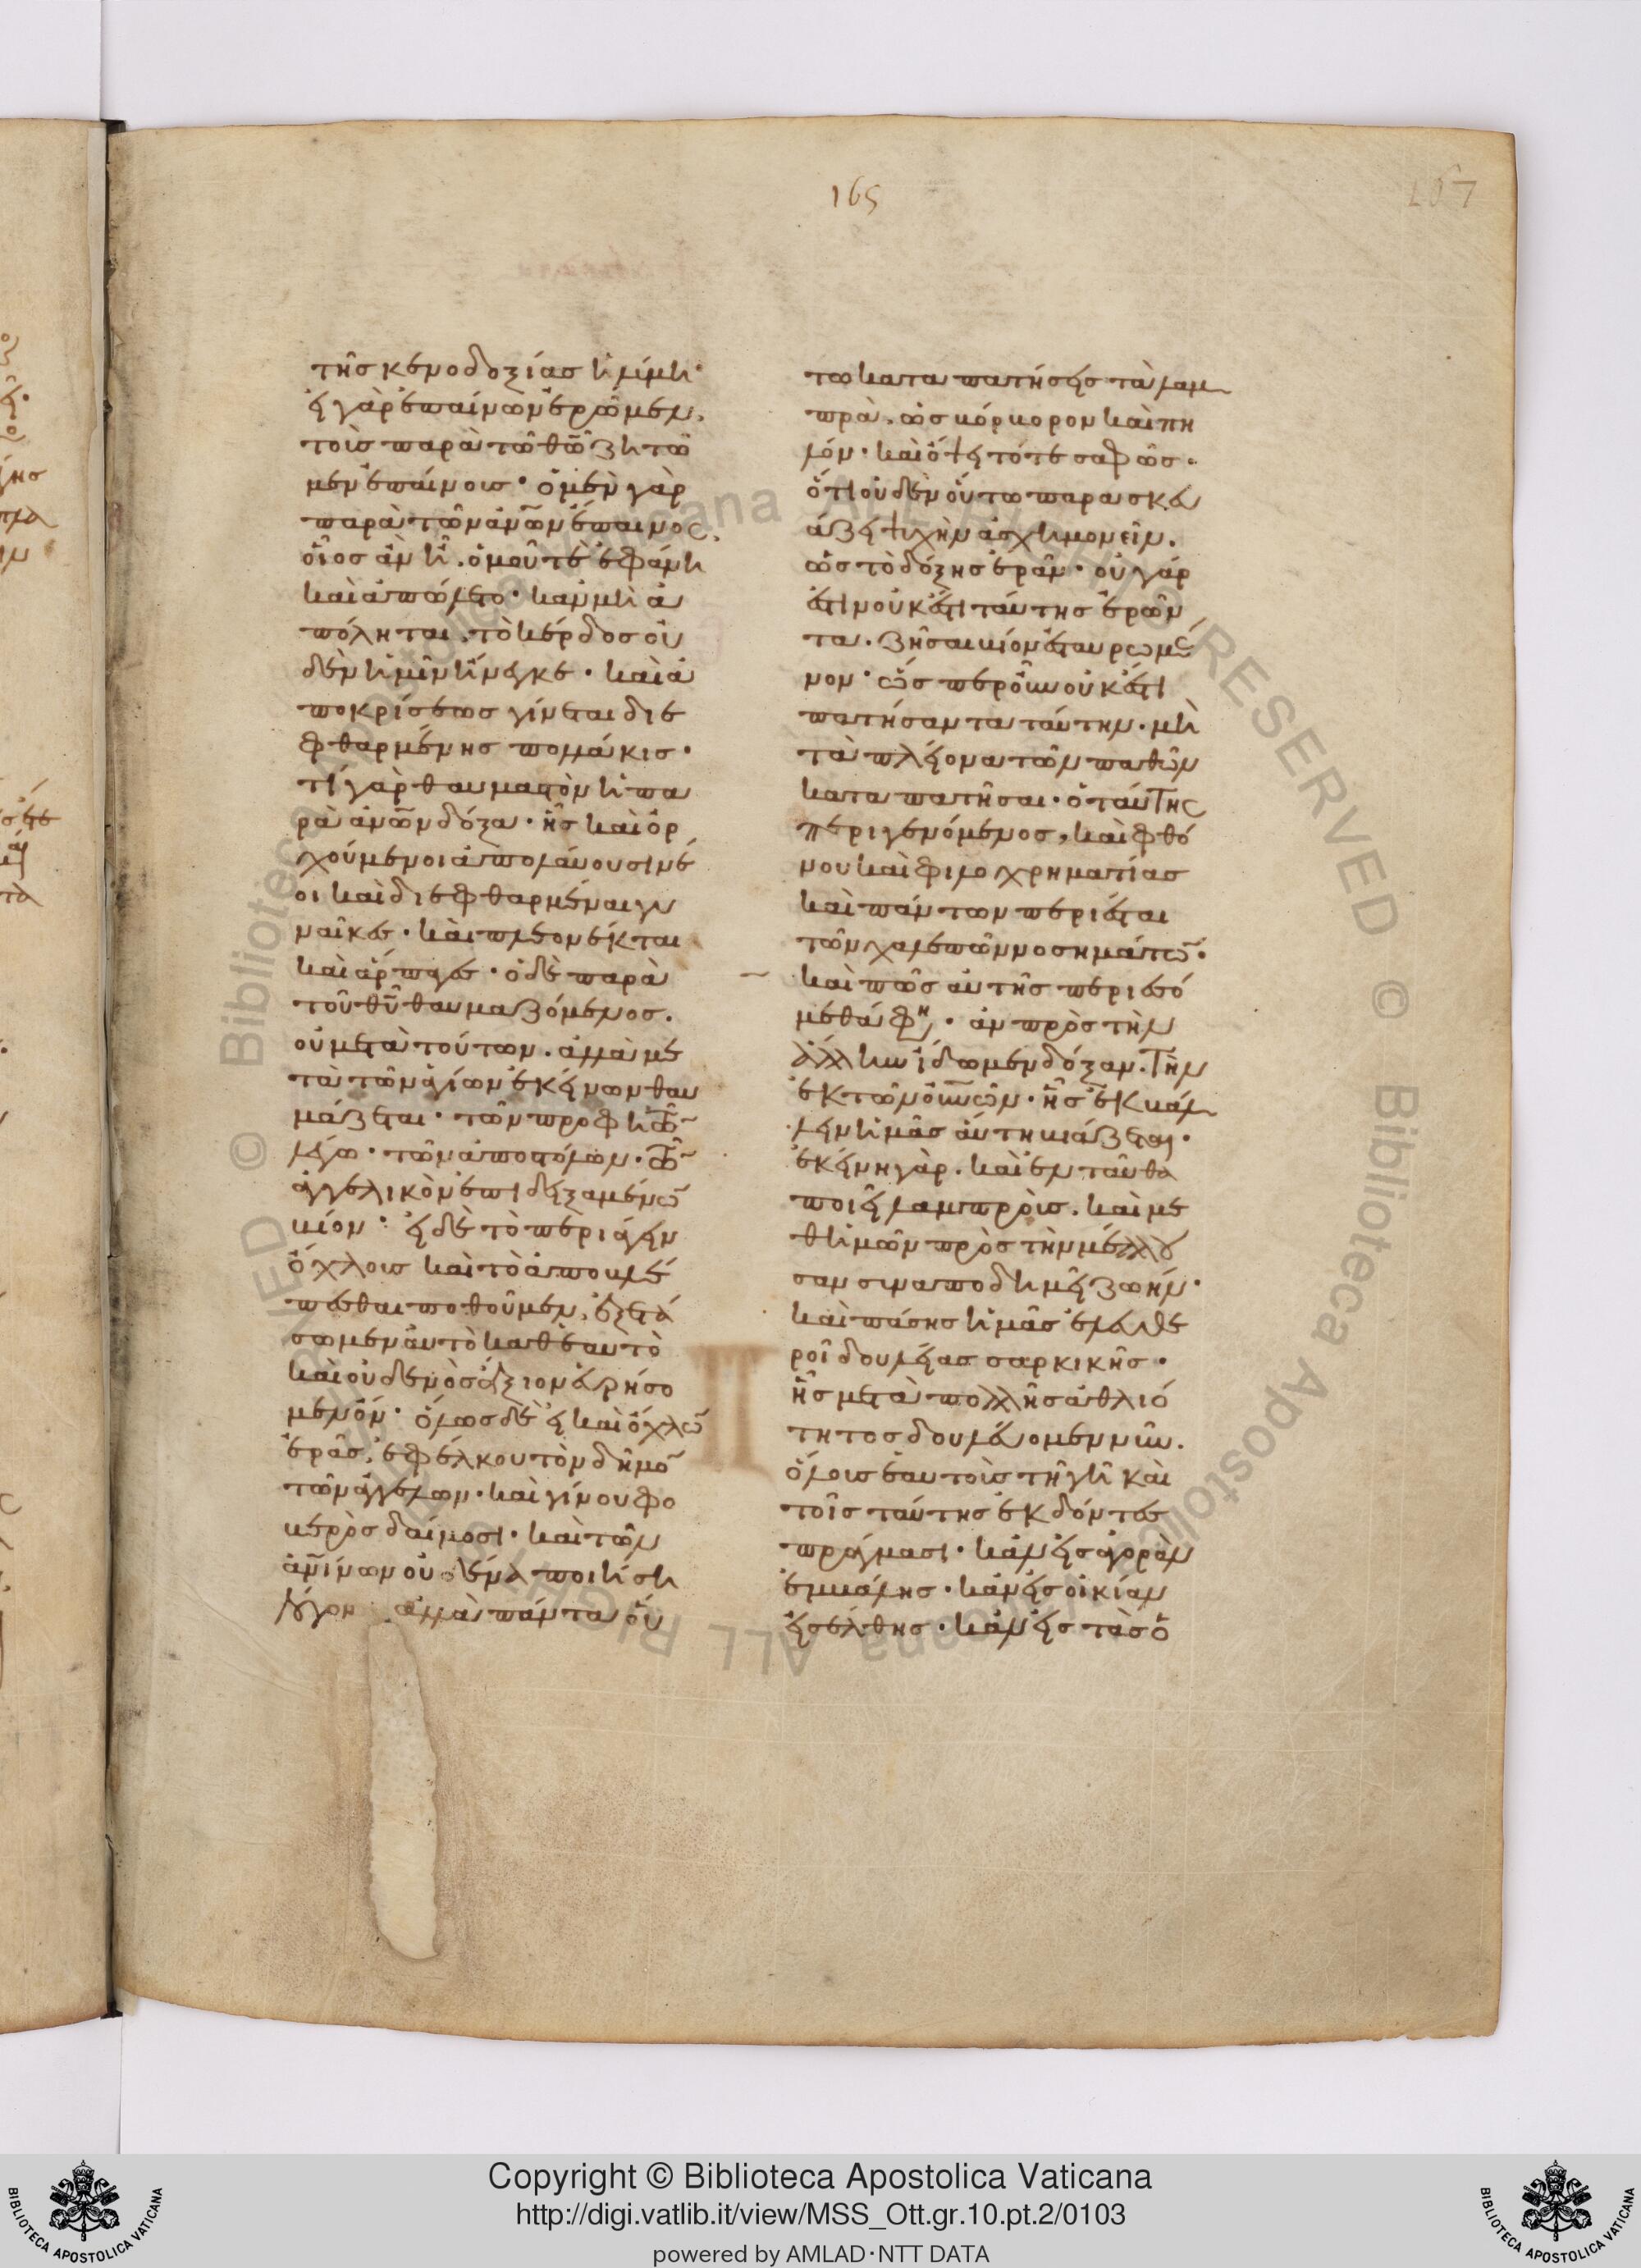 165
167
τῆς κενοδοξίας ἡ μίμη·
εἰ γὰρ ἐπαίνων ἐρῶμεν,
τοῖς παρὰ τῶ θ̅ω̅ ζητῶ
μεν ἐπαίνοις· ὁ μὲν γὰρ
παρὰ τῶν ἀν̅ω̅ν ἔπαινος,
οἷος ἂν ἦ. ὁμοῦ τὲ ἐφάνη
καὶ ἀπώλετο· κἂν μὴ ἀ
πόληται, τὸ κέρδος οὐ
δὲν ἡμῖν ἤνεγκε· καὶ ἀ
ποκρίσεως γίνεται διε
φθαρμένης πολλάκις·
τί γὰρ θαυμαστὸν ἡ πα
ρὰ ἀν̅ω̅ν δόξα· ἧς καὶ ὀρ
χούμενοι ἀπολαύουσι νέ
οι καὶ διεφθαρμέναι γυ
ναῖκες· καὶ πλεονέκται
καὶ ἅρπαγες· ὁ δὲ παρὰ
τοῦ θ̅υ̅ θαυμαζόμενος.
οὐ μετὰ τούτων. ἀλλὰ με
τὰ τῶν ἁγίων ἐκείνων θαυ
μάζεται· τῶν προφητῶν
λέγω· τῶν ἀποστόλων· τῶν
ἀγγελικὸν ἐπιδειξαμένω̅
βίον· εἰ δὲ τὸ περιάγειν
ὄχλοις καὶ τὸ ἀποβλέ
πεσθαι ποθοῦμεν, ἐξετά
σωμεν αὐτὸ καθ' ἑαυτὸ
καὶ οὐδενὸς ἄξιον εὑρήσο
μεν ὄν· ὅλως δὲ εἰ καὶ ὄχλω̅
ἐρᾶς, ἐφέλκου τὸν δῆμο̅
τῶν ἀγγέλων· καὶ γίνου φο
βερὸς δαίμοσι· καὶ τῶν
ἀν̅ίνων οὐδένα ποιήση
λόγον ἀλλὰ πάντα οὕ
τω καταπατήσεις τὰ λαμ
πρὰ. ὡς βόρβορον καὶ πη
λόν· καὶ ὄψει τότε σαφῶς.
ὅτι οὐδὲν οὕτω παρασκευ
άζει ψυχὴν ἀσχημονεῖν.
ὡς τὸ δόξης ἐρᾶν· οὐ γάρ
ἐστιν οὐκ ἔστι ταύτης ἐρῶν
τα. ζῆσαι βίον ἐσταυρωμέ
νον· ὥσπερ οὖν οὐκ ἔστι
πατήσαντα ταύτην. μὴ
τὰ πλείονα τῶν παθῶν
καταπατῆσαι· ὁ ταύτης
περιγενόμενος, καὶ φθό
νου καὶ φιλοχρηματίας
καὶ πάντων περιέσται
τῶν χαλεπῶν νοσημάτω̅.
καὶ πῶς αὐτῆς περιεσό
μεθά φη. ἂν πρὸς τὴν
ἄλλην ἴδωμεν δόξαν. τὴν
ἐκ τῶν οὐ̅ν̅ω̅ν. ἧς ἐκβάλ
λειν ἡμᾶς αὕτη βιάζεται.
ἐκείνη γὰρ. καὶ ἐνταῦθα
ποιεῖ λαμπροὺς. καὶ με
θ' ἡμῶν πρὸς τὴν μέλλου
σαν συναποδημεῖ ζωήν.
καὶ πάσης ἡμᾶς ἐλευθε
ροῖ δουλείας σαρκικῆς.
ἧς μετὰ πολλῆς ἀθλιό
τητος δουλεύομεν νῦν.
ὅλους ἑαυτοὺς τῆ γῆ καὶ
τοῖς ταύτης ἐκδόντες
πράγμασι· κἂν εἰς ἀγορὰν
ἐμβάλης· κἂν εἰς οἰκίαν
εἰσέλθης· κἂν εἰς τὰς ὁ
Copyright © Biblioteca Apostolica Vaticana
http://digi.vatlib.it/view/MSS_Ott.gr.10.pt.2/0103
powered by AMLAD·NTT DATA
BIBLIOTECA APOSTOLICA VATICANA
BIBLIOTECA APOSTOLICA VATICANA